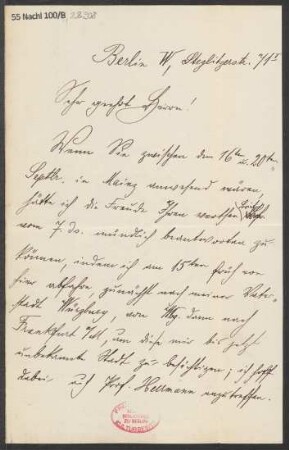 55 Nachl 100/B
Berlin W, Steglitzerstr.
Sehr geehrt Herrn!
Wenn Sie zwischen den 16ten u. 20ten
Septbr. in Mainz anwesend wären,
hätte ich die Freude Ihren werthen
vom 7. ds. mündlich beantworten zu
können, indem ich am 15ten früh von
hier abfahre zunächst nach meiner Vater-
stadt Würzburg, von Wbg. dann nach
Frankfurt a/M, um diese mir bis jetzt
unbekannte Stadt zu besichtigen; ich hoffe
dabei auch Prof. Herrmann anzutreffen.